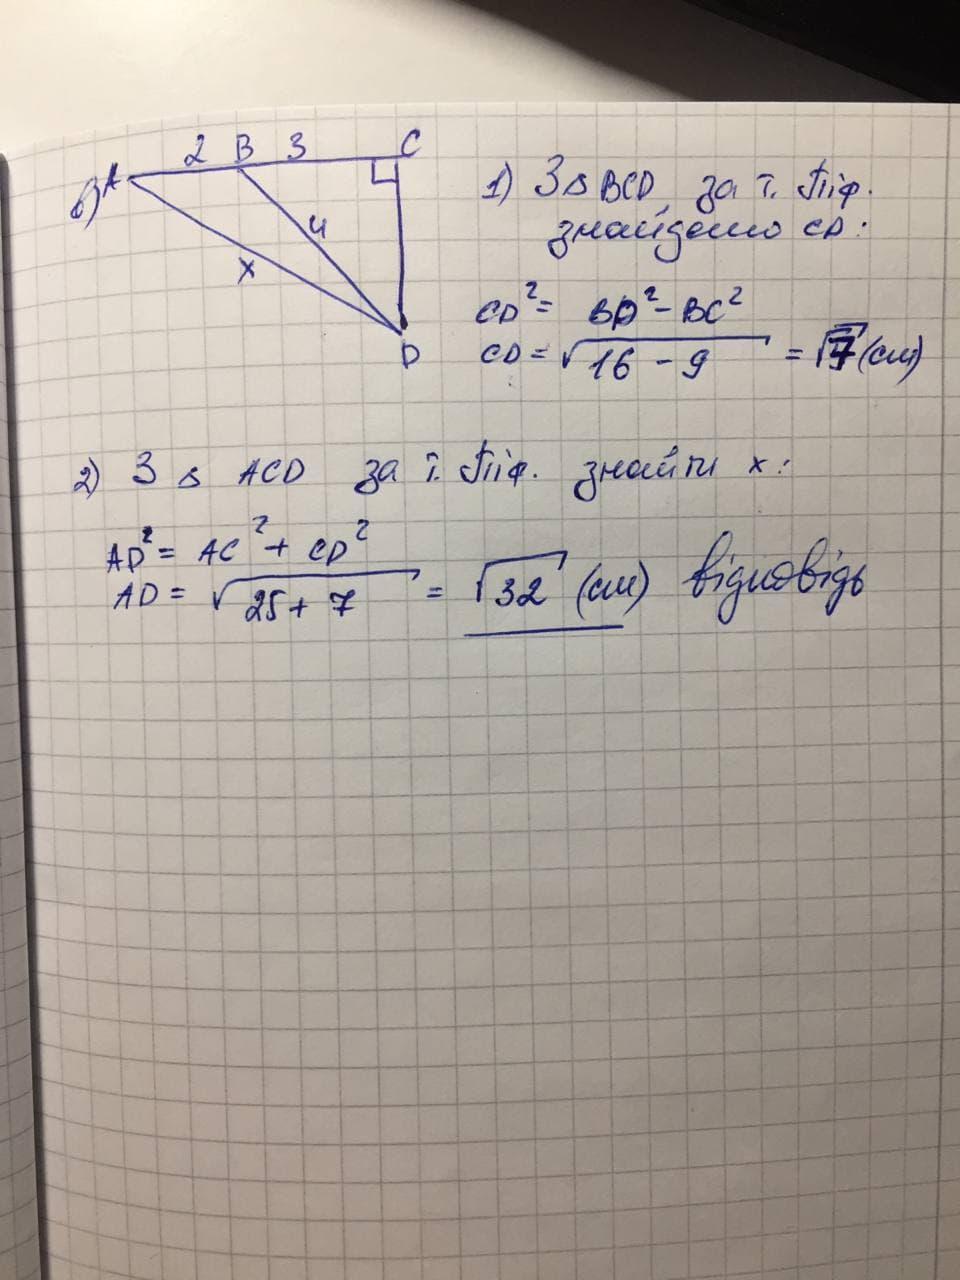 в)
A 2 B 3 C
4
x
D
1) З △ BCD, за т. Піф.
знайдемо CD:
CD² = BD² - BC²
CD = √16 - 9 = √7 (см)
2) З △ ACD за т. Піф. знайти x:
AD² = AC² + CD²
AD = √25 + 7 = √32 (см) відповідь